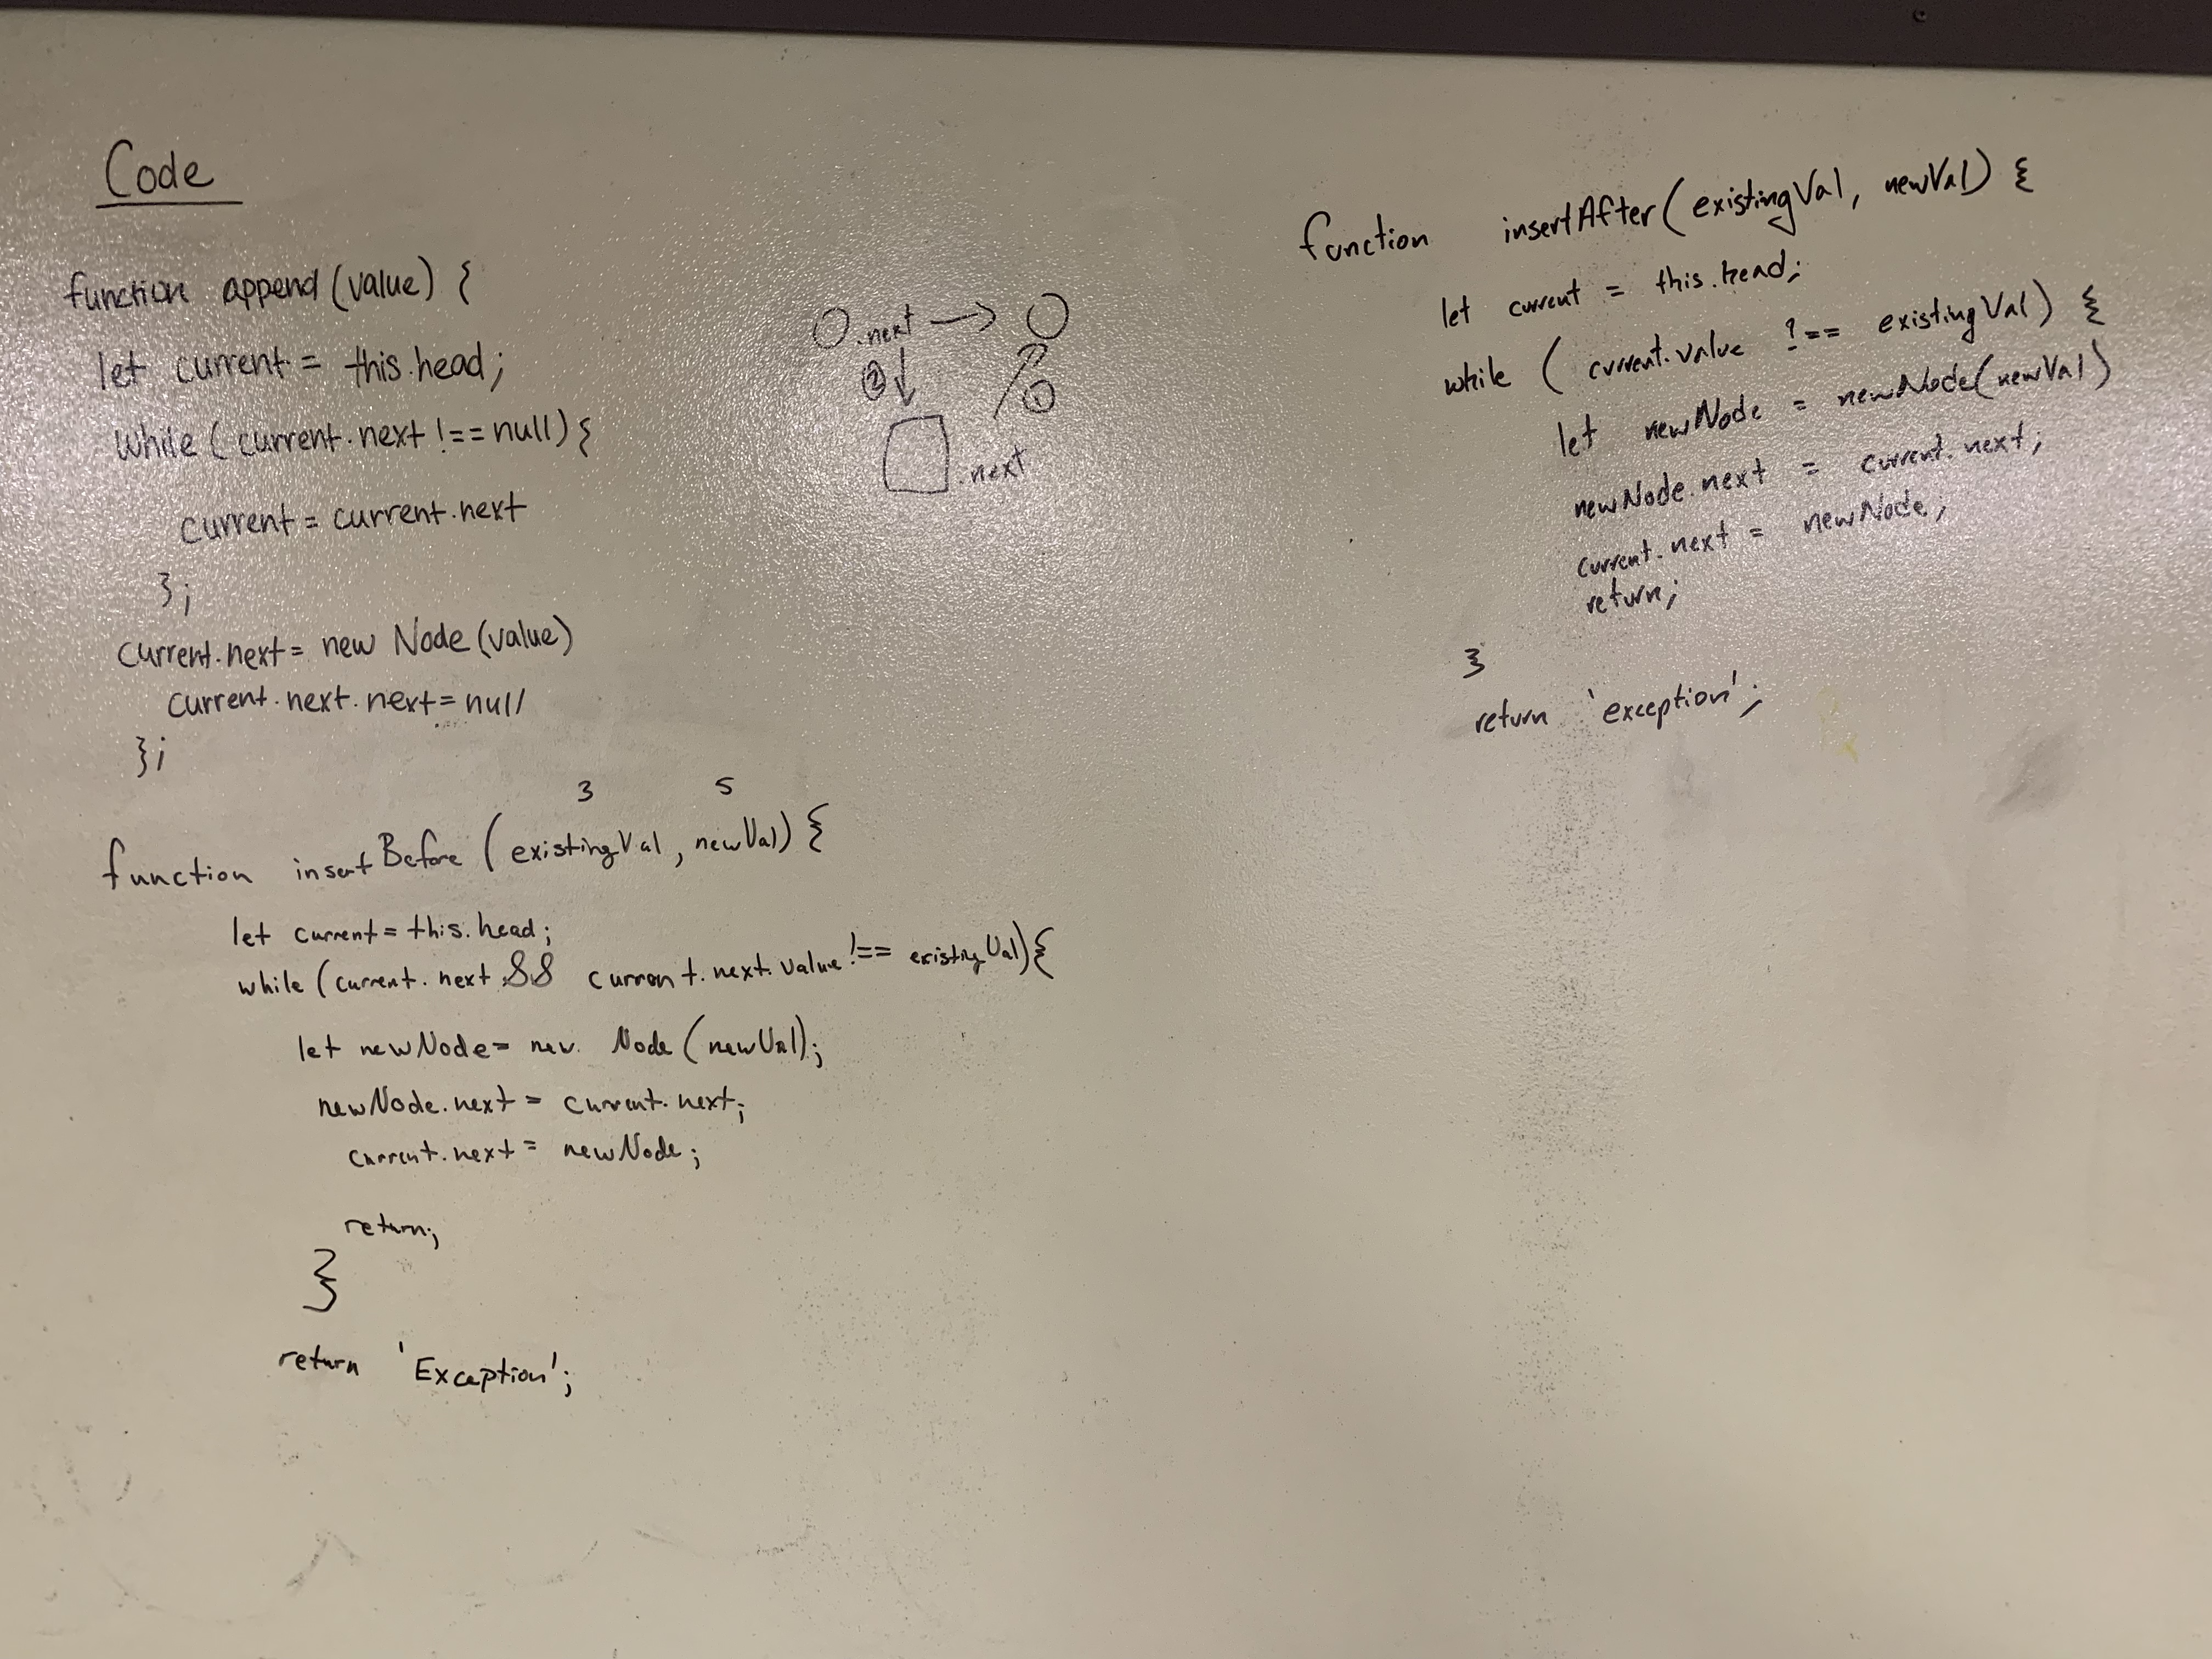 Code
function append(value) {
let current = this.head;
while (current.next !== null) {
current = current.next
};
current.next = new Node (value)
current.next.next = null
};
3 5
function insertBefore (existingVal, newVal) {
let current = this.head;
while (current.next && current.next.value !== existingVal) {
let newNode = new Node (newVal);
newNode.next = current.next;
current.next = newNode;
return;
}
return 'Exception';
.next
2
1
.next
function insertAfter (existingVal, newVal) {
let current = this.head;
while ( current.value !== existingVal) {
let newNode = newNode(newVal)
newNode.next = current.next;
current.next = newNode;
return;
}
return 'exception';